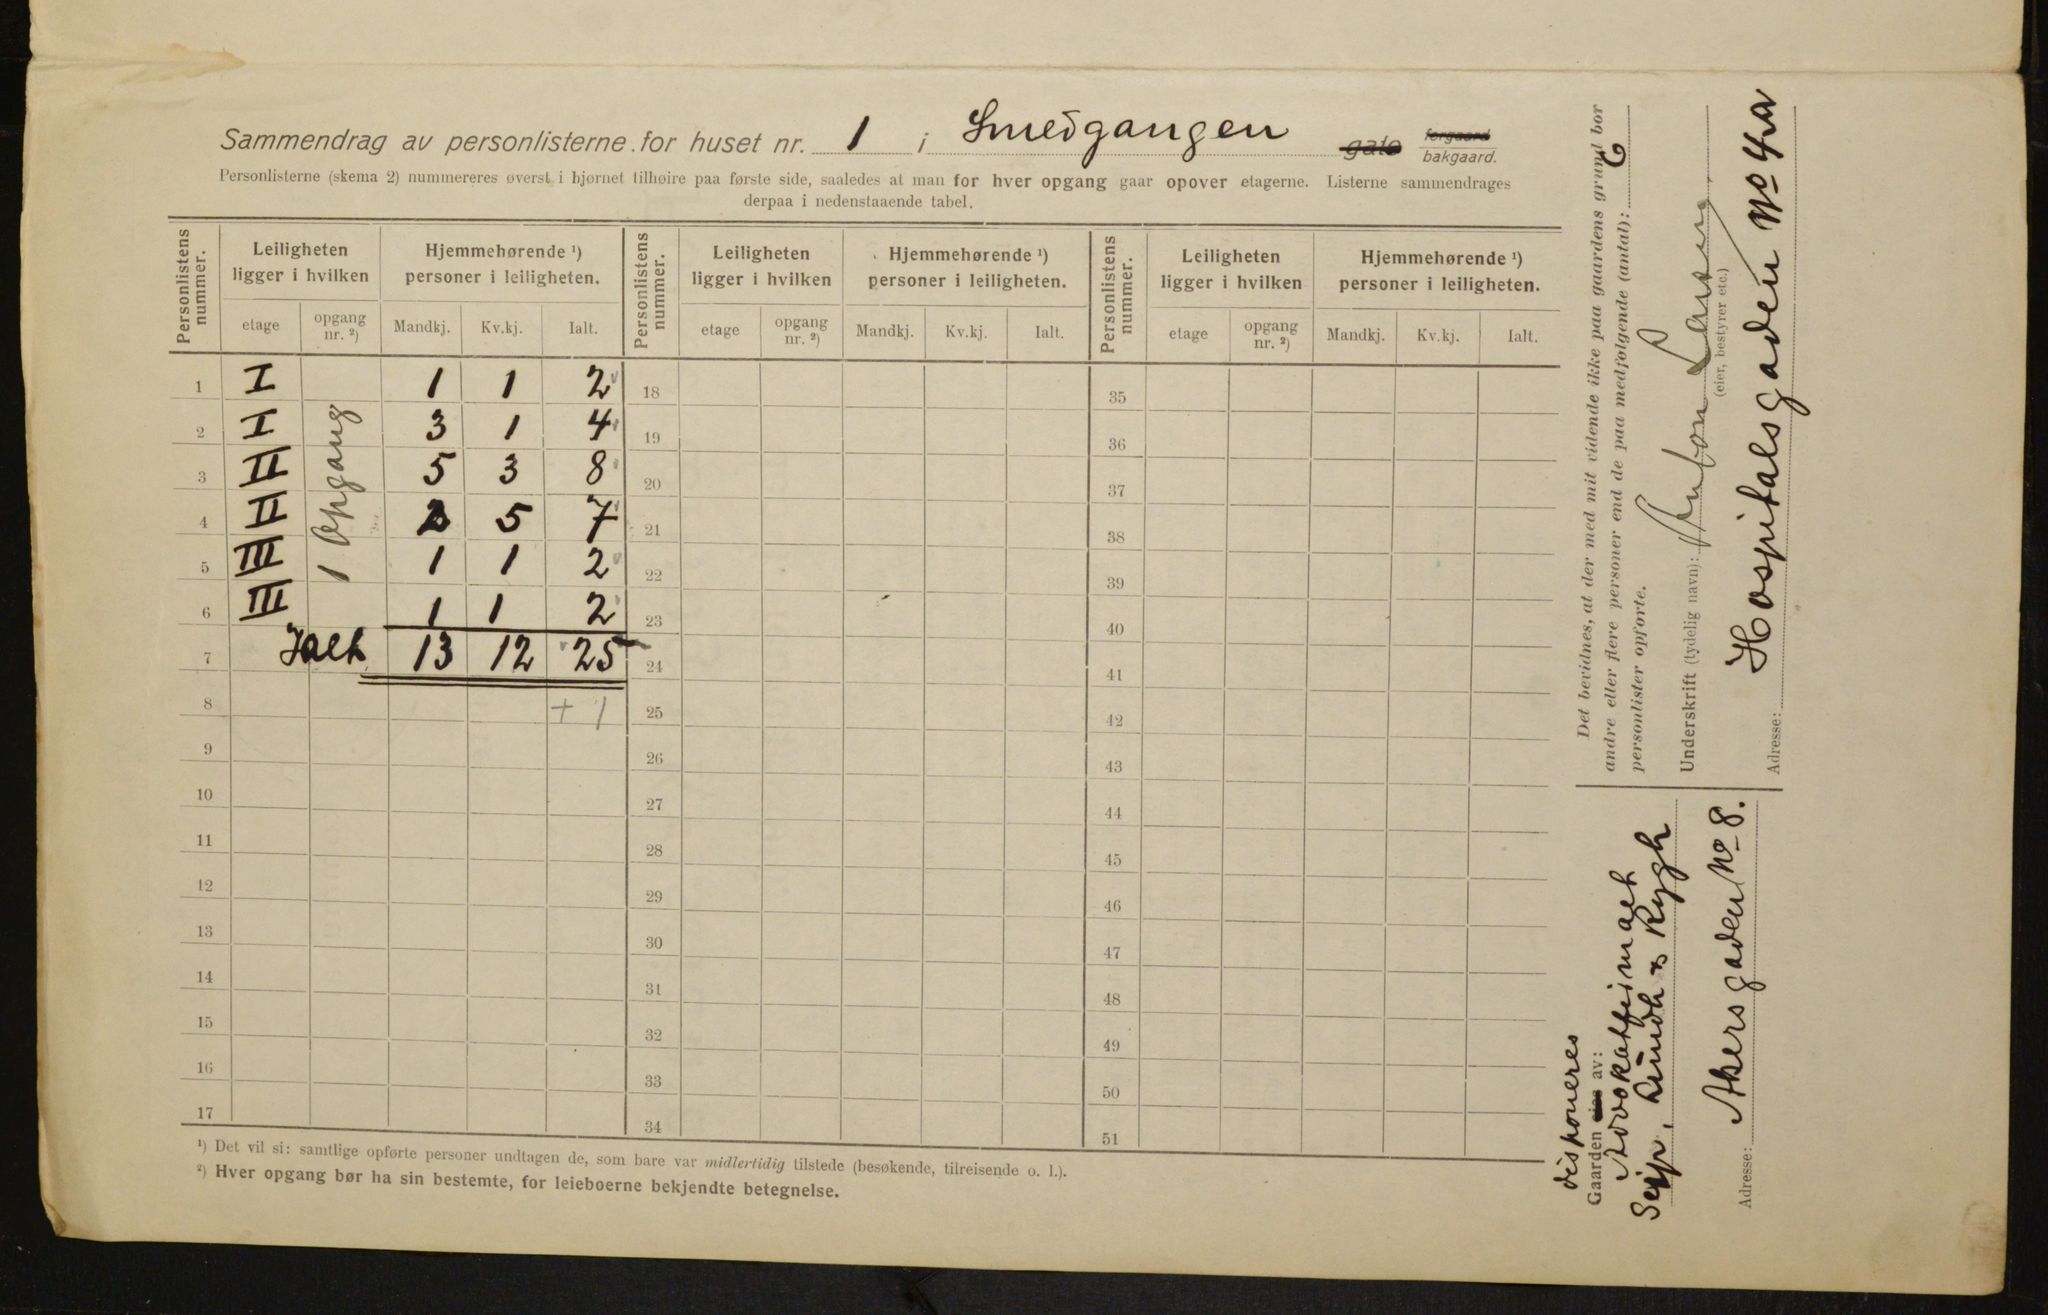 Sammendrag av personlisterne for huset nr. 1 i Smedgangen gate forgaard bakgaard.
Personlisterne (skema 2) nummereres øverst i hjørnet tilhøire paa første side, saaledes at man for hver opgang gaar opover etagerne. Listerne sammendrages
derpaa i nedenstaaende tabel.
Personlistens nummer. Leiligheten ligger i hvilken Hjemmehørende ¹) personer i leiligheten. Personlistens nummer. Leiligheten ligger i hvilken Hjemmehørende ¹) personer i leiligheten. Personlistens nummer. Leiligheten ligger i hvilken Hjemmehørende ¹) personer i leiligheten.
etage opgang nr. ²) Mandkj. Kv.kj. Ialt. etage opgang nr. ²) Mandkj. Kv.kj. Ialt. etage opgang nr. ²) Mandkj. Kv.kj. Ialt.
1 I 1 1 2 18 35
2 I 3 1 4 19 36
3 II 5 3 8 20 37
4 II 2 5 7 21 38
5 III 1 1 2 22 39
6 III 1 1 2 23 40
1 Opgang
7 Ialt 13 12 25 24 41
8 + 1 25 42
9 26 43
10 27 44
11 28 45
12 29 46
13 30 47
14 31 48
15 32 49
16 33 50
17 34 51
¹) Det vil si: samtlige opførte personer undtagen de, som bare var midlertidig tilstede (besøkende, tilreisende o. l.).
²) Hver opgang bør ha sin bestemte, for leieboerne bekjendte betegnelse.
Det bevidnes, at der med mit vidende ikke paa gaardens grund bor
andre eller flere personer end de paa medfølgende (antal): 6
personlister opførte.
Underskrift (tydelig navn): Anton Larsen,
(eier, bestyrer etc.)
Adresse: Hospitalsgaden No 4a
disponeres
Gaarden eies av:
Advokatfirmaet
Sejr, Lundh & Rygh
Adresse: Akersgaden No 8.